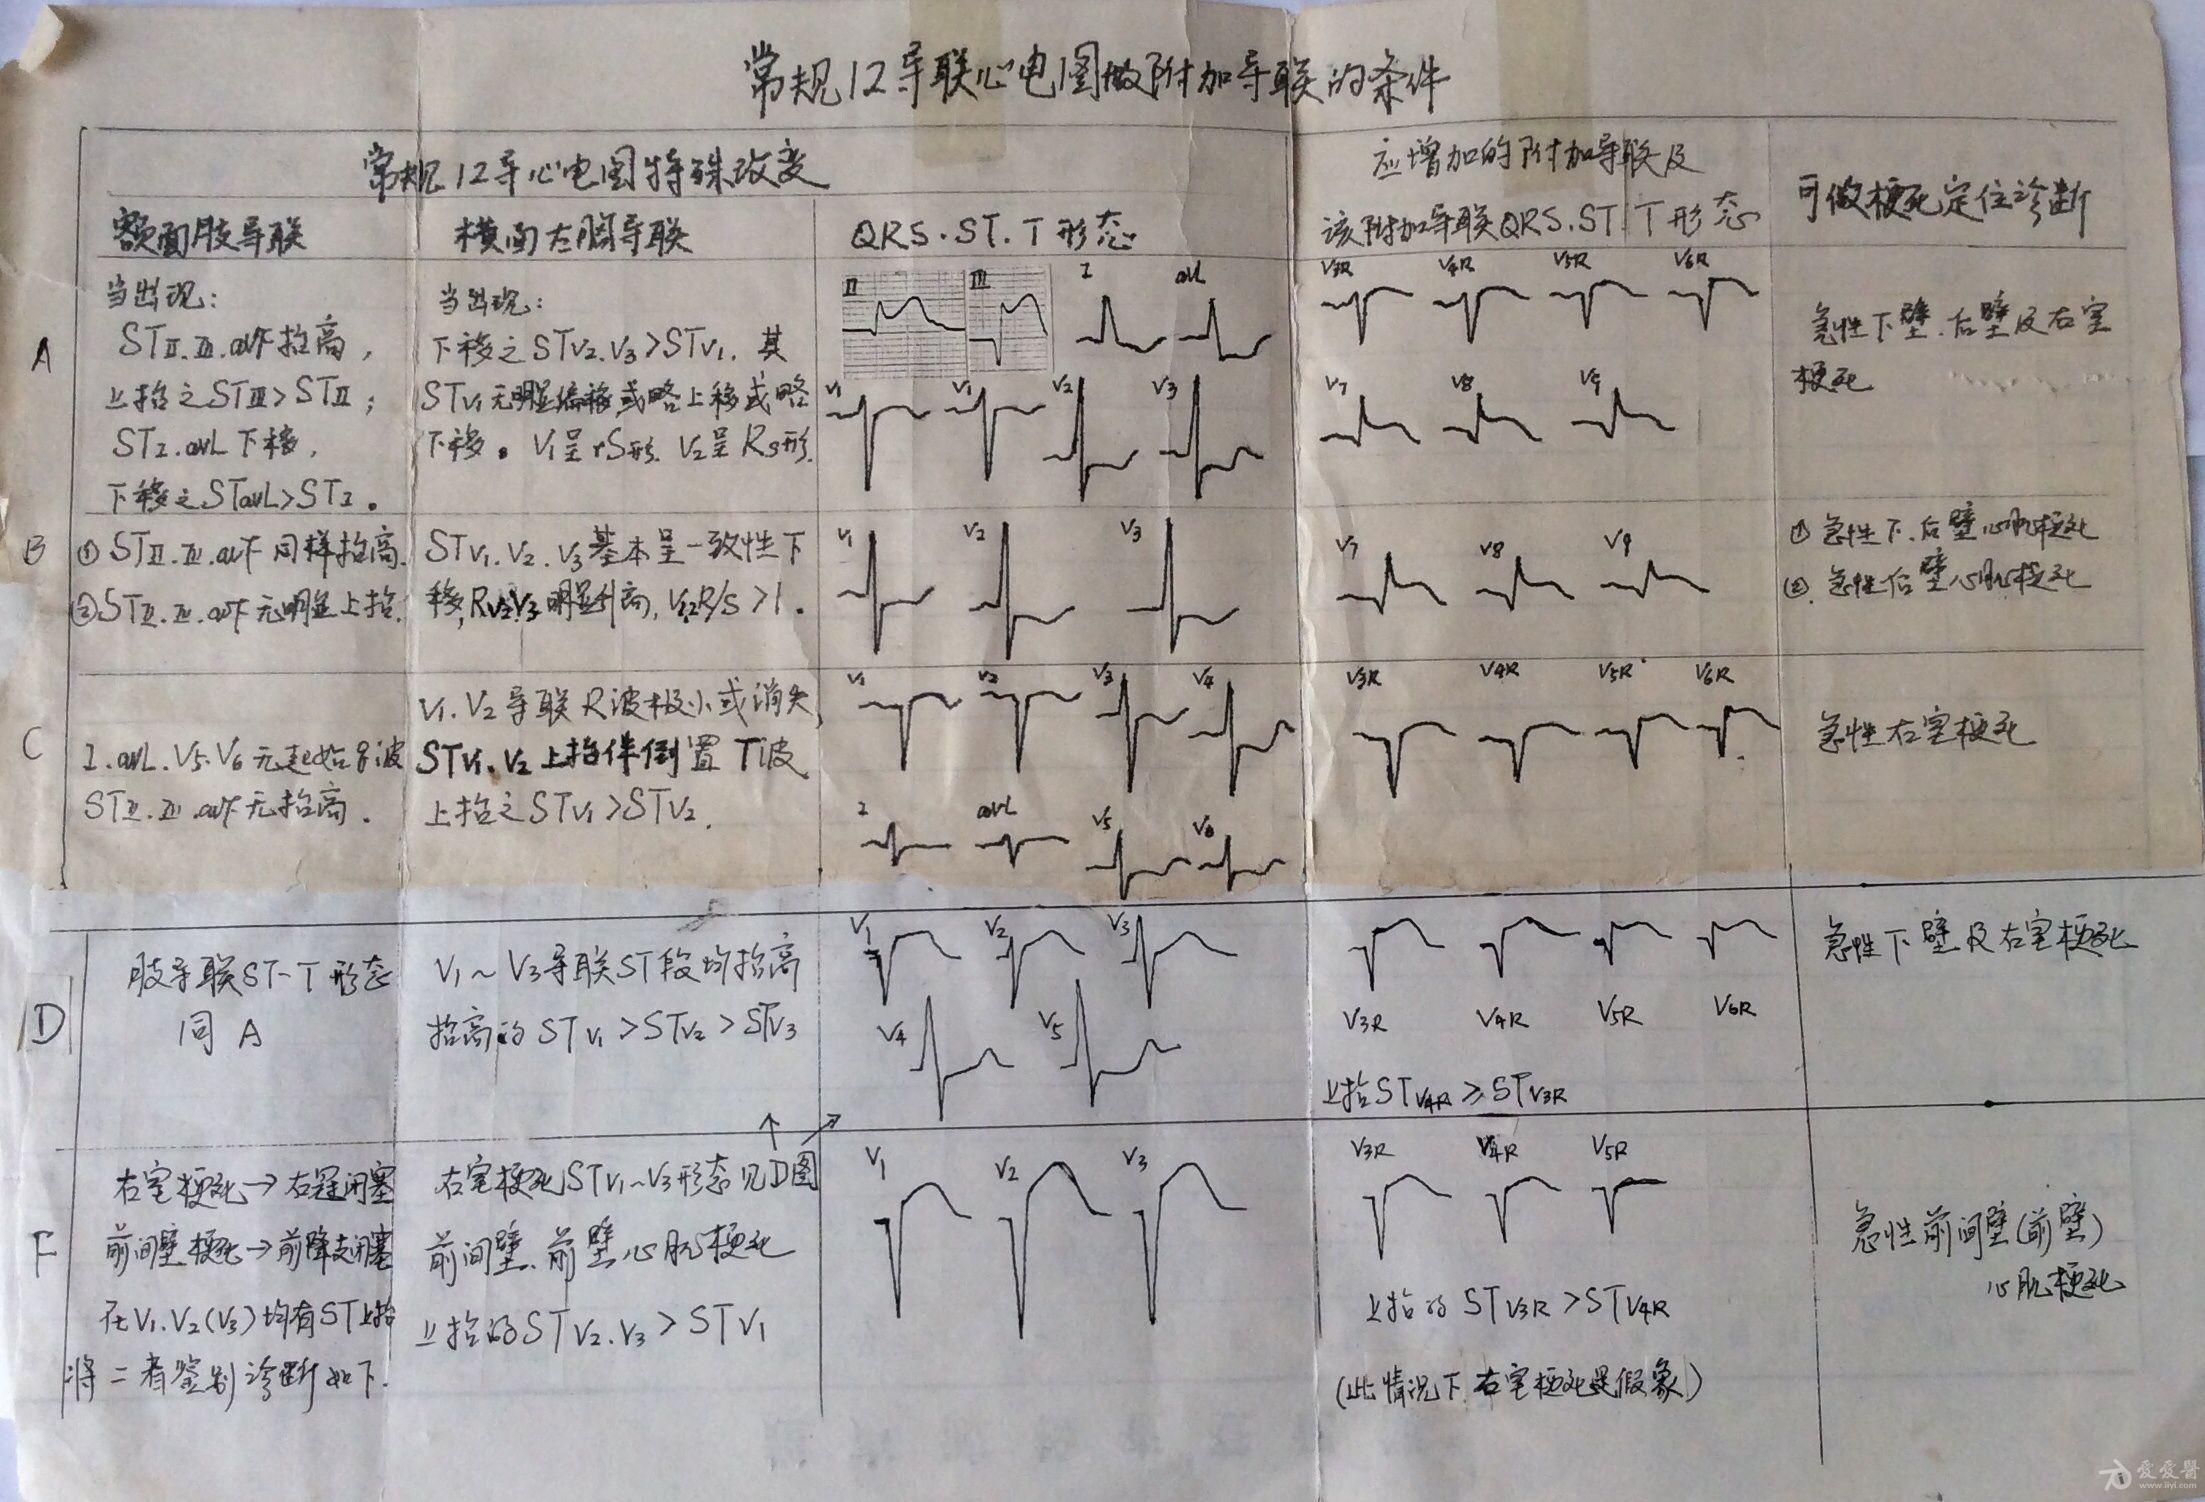 常规12导联心电图做附加导联的条件
常规12导心电图特殊改变
应增加的附加导联及
该附加导联QRS.ST.T形态
可做梗死定位诊断
额面肢导联
横面左胸导联
QRS.ST.T形态
A
当出现:
STⅡ.Ⅲ.avF抬高,
上抬之STⅢ>STⅡ;
STI.avL下移,
下移之STavL>STI。
当出现:
下移之STV2.V3>STV1.其
STV1无明显偏移或略上移或略
下移。V1呈rS形.V2呈Rs形.
Ⅱ Ⅲ I avL
V1 V1 V2 V3
V3R V4R V5R V6R
V7 V8 V9
急性下壁.后壁及右室
梗死
B
①STⅡ.Ⅲ.avF同样抬高.
②STⅡ.Ⅲ.avF无明显上抬.
STV1.V2.V3基本呈一致性下
移,RV2.V3明显升高,V1.2R/S>1。
V1 V2 V3
V7 V8 V9
①急性下.后壁心肌梗死
②.急性后壁心肌梗死
C
I.avL.V5.V6无起始q波
STⅡ.Ⅲ.avF无抬高.
V1.V2导联R波极小或消失,
STV1.V2上抬伴倒置T波
上抬之STV1>STV2.
V1 V2 V3 V4
I avL V5 V6
V3R V4R V5R V6R
急性右室梗死
D
肢导联ST-T形态
同A
V1~V3导联ST段均抬高
抬高的STV1>STV2>STV3
V1 V2 V3
V4 V5
V3R V4R V5R V6R
上抬STV4R≥STV3R
急性下壁及右室梗死
F
右室梗死→右冠闭塞
前间壁梗死→前降支闭塞
在V1.V2(V3)均有ST上抬
将二者鉴别诊断如下.
右室梗死STV1~V3形态见D图
前间壁.前壁心肌梗死
上抬的STV2.V3>STV1
V1 V2 V3
V3R V4R V5R
上抬的STV3R>STV4R
(此情况下.右室梗死是假象)
急性前间壁(前壁)
心肌梗死
爱爱醫
www.iiyi.com